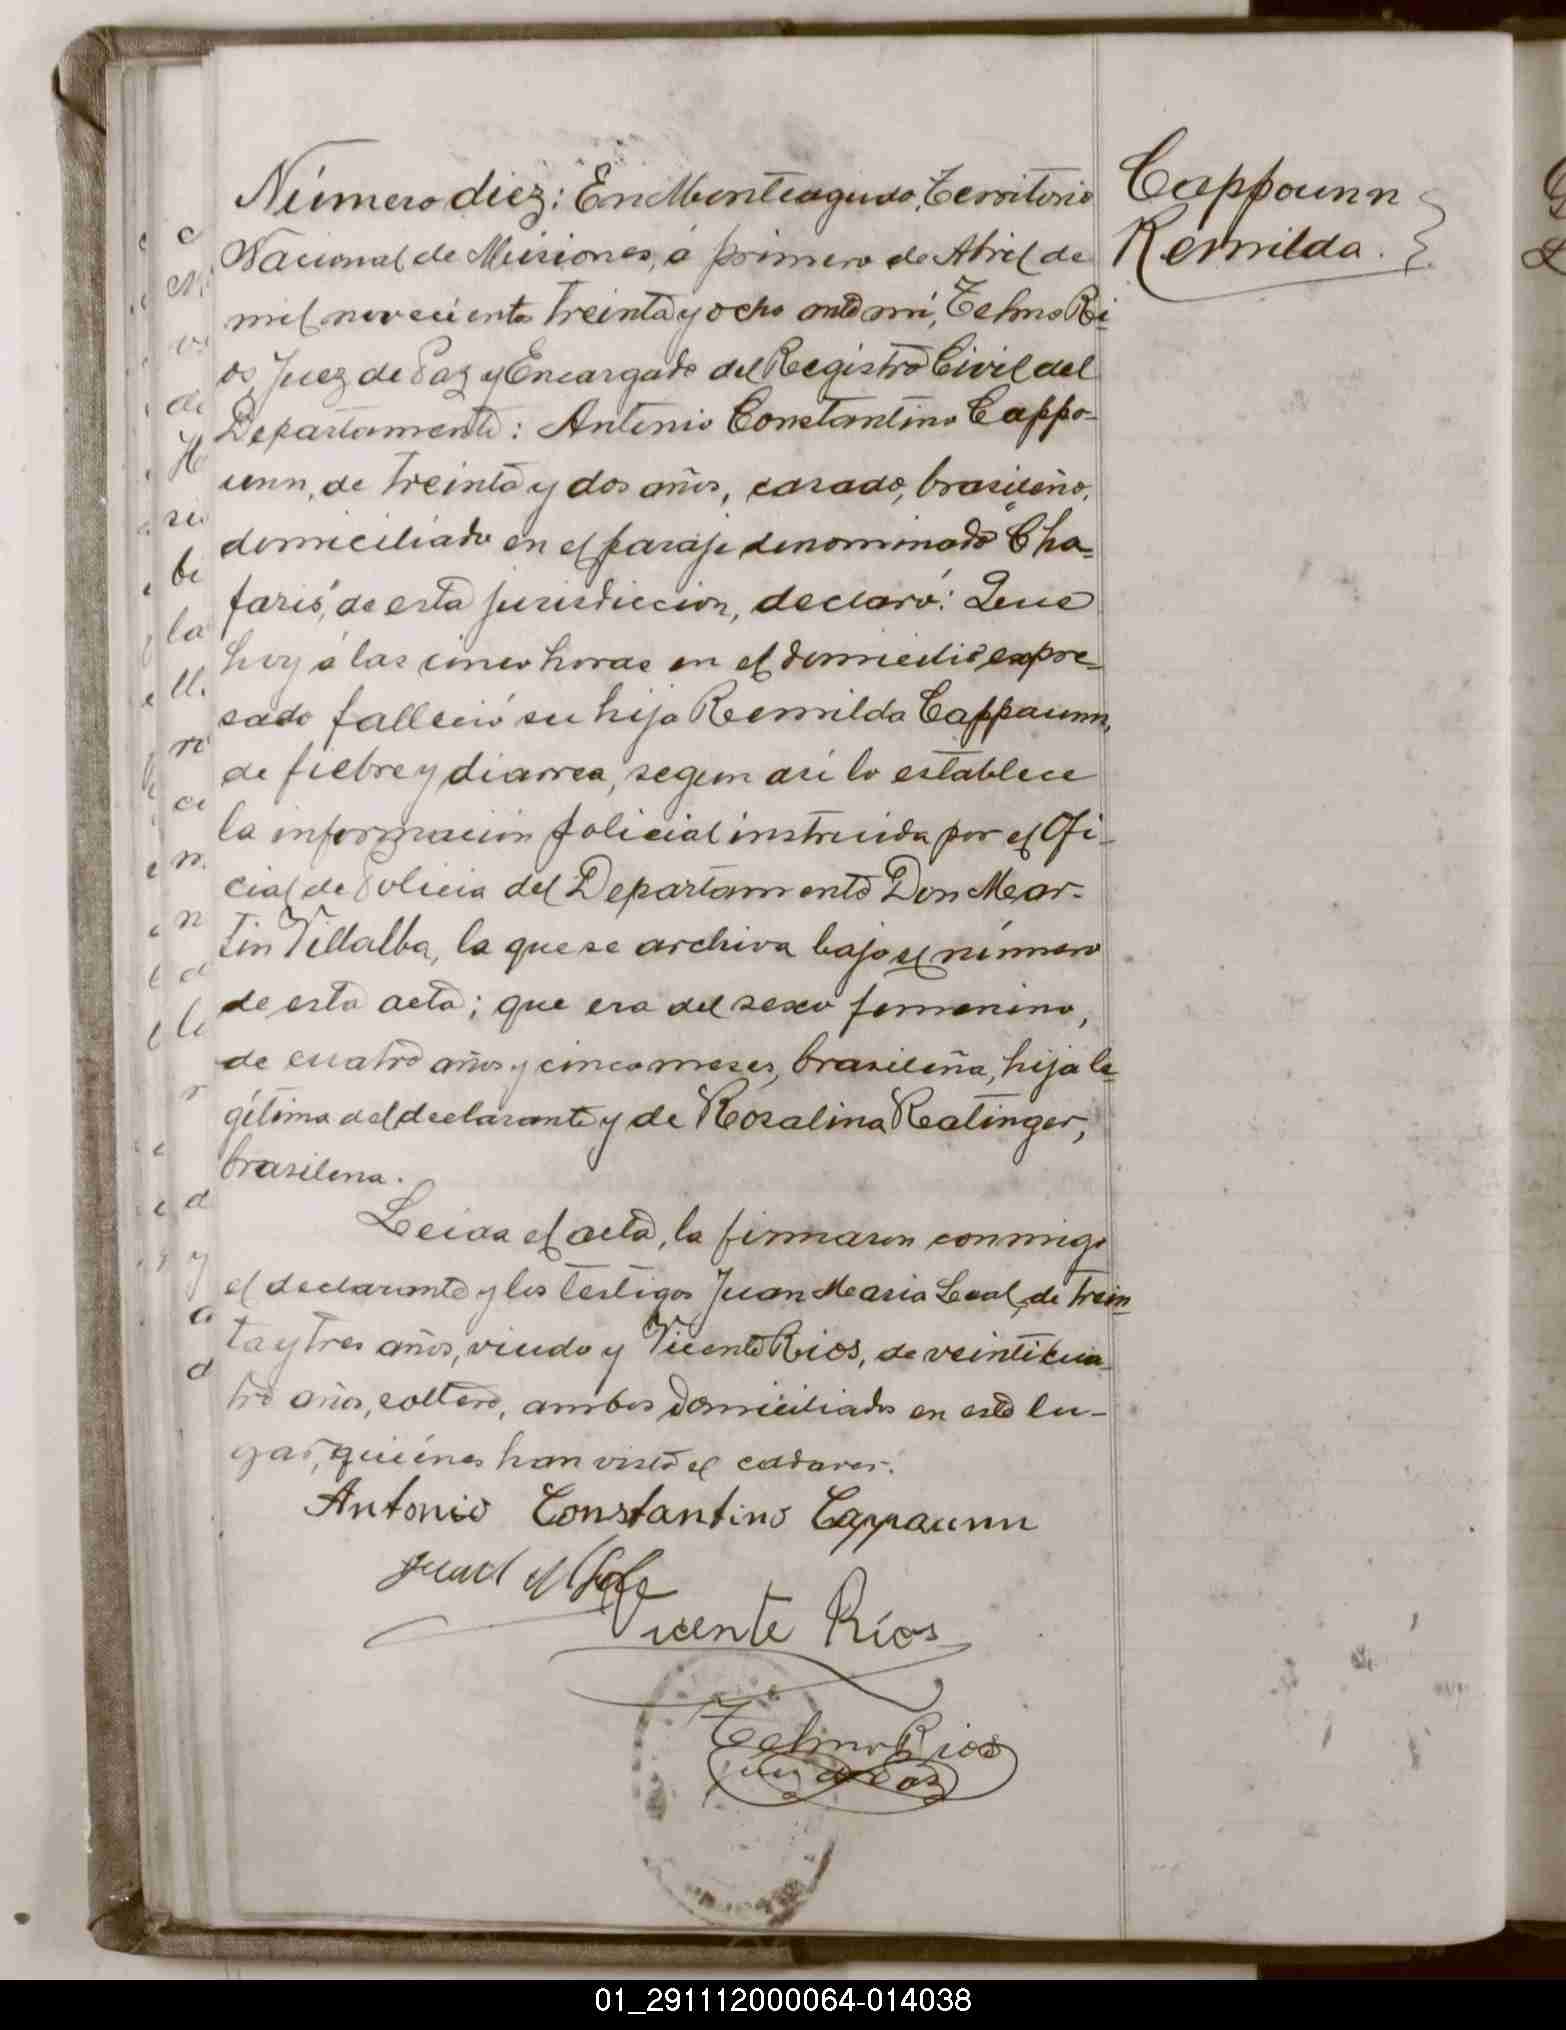 Número diez: En Monteagudo, Territorio
Nacional de Misiones, á primero de Abril de
mil novecientos treinta y ocho ante mí, Telmo Ri-
os, Juez de Paz y Encargado del Registro Civil del
Departamento: Antonio Constantino Cappo-
unn, de treinta y dos años, casado, brasileño,
domiciliado en el paraje denominado "Cha-
faris", de esta jurisdiccion, declaró: Que
hoy á las cinco horas en el domicilio expre-
sado falleció su hija Remilda Cappaunn,
de fiebre y diarrea, segun así lo establece
la información policial instruida por el Ofi-
cial de Policia del Departamento Don Mar-
tin Villalba, la que se archiva bajo el número
de esta acta; que era del sexo femenino,
de cuatro años y cinco meses, brasileña, hija le-
gítima del declarante y de Rosalina Reatinger,
brasilena.
Leida el acta, la firmaron conmigo
el declarante y los testigos Juan Maria Leal, de trein-
ta y tres años, viudo y Vicente Rios, de veinticua-
tro años, soltero, ambos domiciliados en este lu-
gar, quiénes han visto el cadaver.
Antonio Constantino Cappaunn
Juan M
Vicente Ríos
Telmo Rios
Juez de Paz
Cappounn
Remilda.
01_291112000064-014038